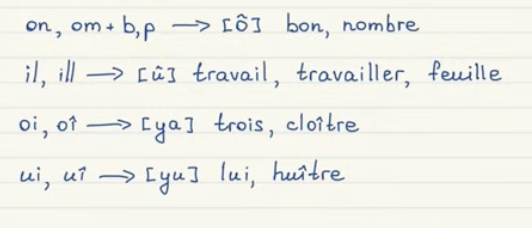 on, om + b,p → [ô] bon, nombre
il, ill → [й] travail, travailler, feuille
oi, oî → [уа] trois, cloître
ui, uî → [уи] lui, huître